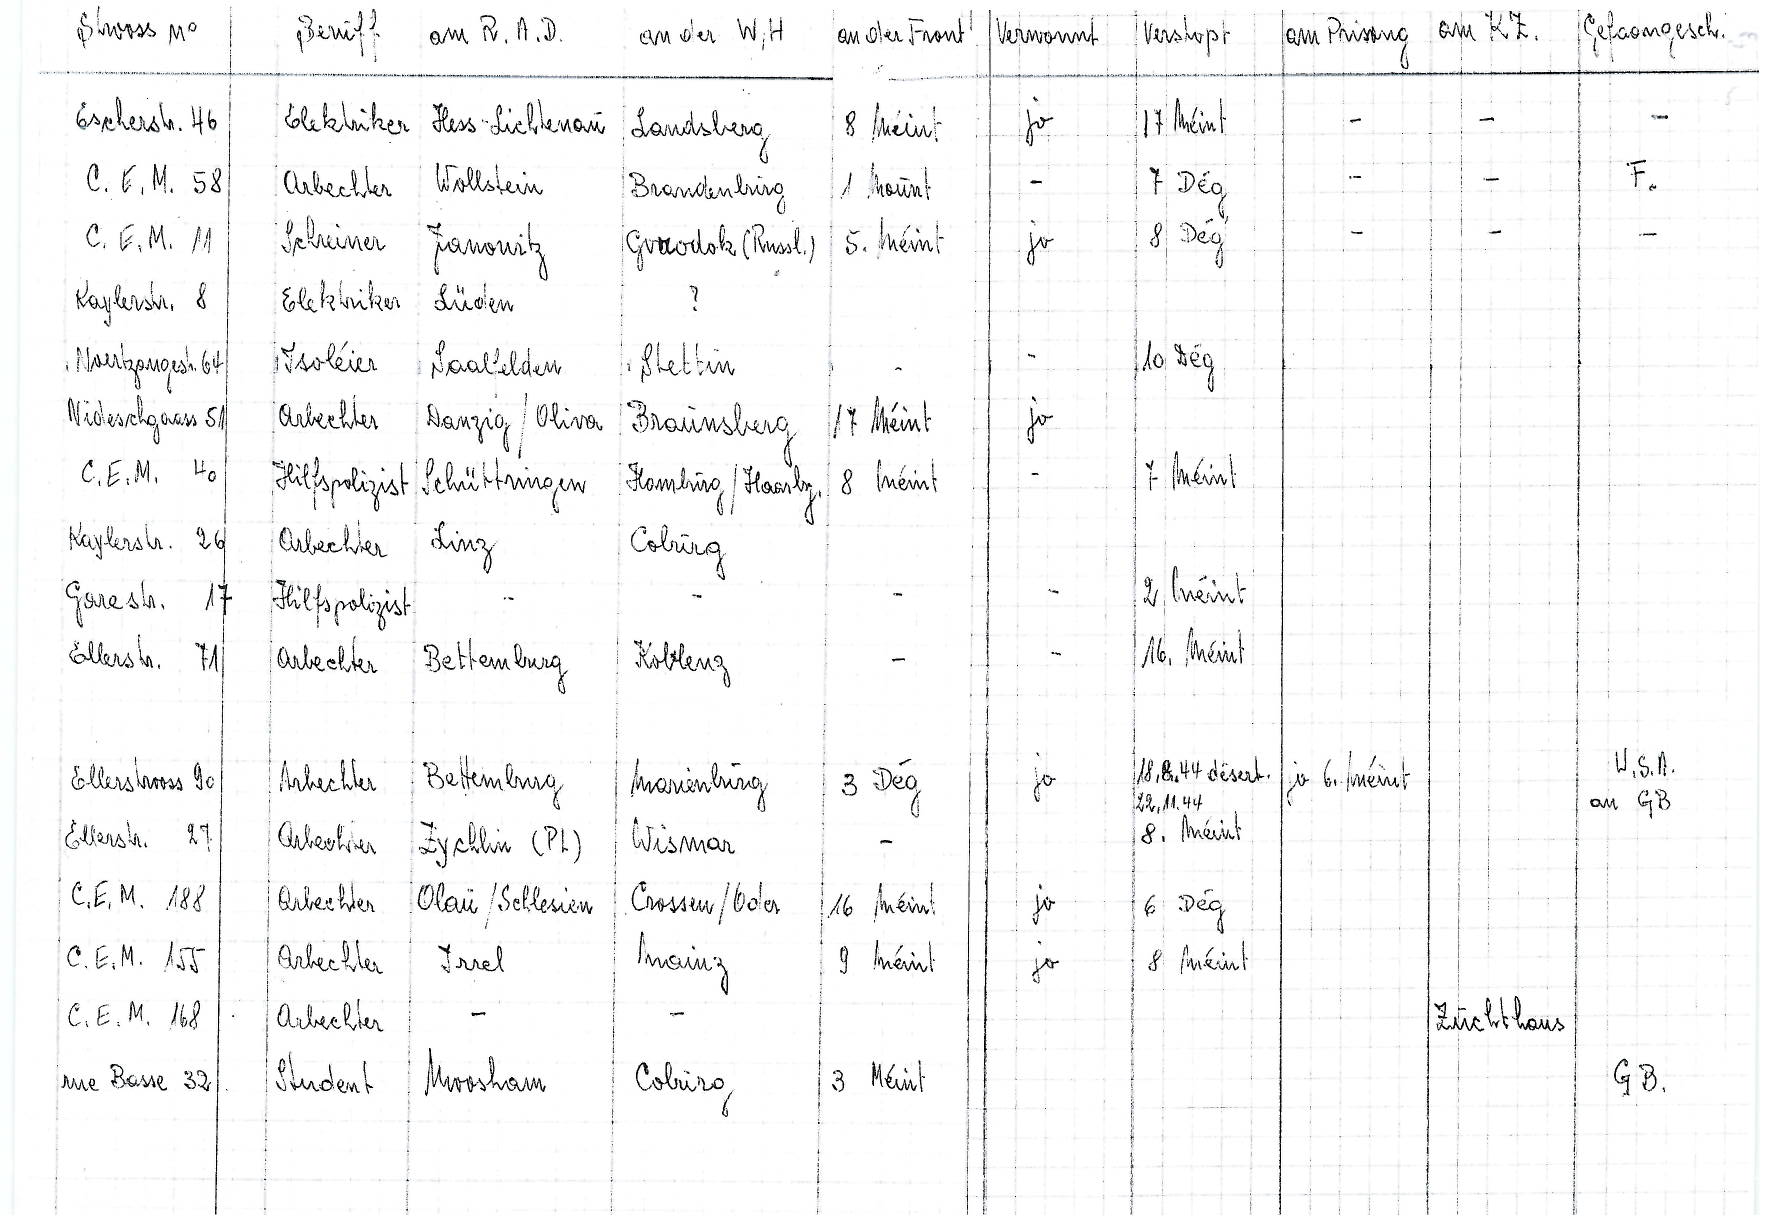 Strooss no Beruff am R.A.D. an der W,H an der Front Verwonnt Verstopt am Prisong am KZ. Gefaangesch.
Escherstr. 46 Elektriker Hess-Lichtenau Landsberg 8 Méint jo 17 Méint - - -
C.E.M. 58 Arbechter Wollstein Brandenburg 1 Mount - 7 Dég - - F.
C.E.M. 11 Schreiner Janowitz (Russl.) 5. Méint jo 8 Dég - - -
Kaylerstr. 8 Elektriker Lüden ?
Noertzangestr. 64 Isoléier Saalfelden Stettin - - 10 Dég
Nideschgaass 51 Arbechter Danzig/Oliva Braunsberg 17 Méint jo
C.E.M. 40 Hilfspolizist Schüttringen Homburg/Haarbg. 8 Méint - 7 Méint
Kaylerstr. 26 Arbechter Linz Coburg
Garestr. 17 Hilfspolizist - - - - 2 Méint
Ellerstr. 71 Arbechter Bettemburg Koblenz - - 16. Méint
Ellerstrooss 90 Arbechter Bettemburg Marienburg 3 Dég jo 18.8.44 désert. jo 6. Méint U.S.A.
22.11.44 an GB
Ellerstr. 27 Arbechter Zychlin (PL) Wismar - 8. Méint
C.E.M. 188 Arbechter Olau/Schlesien Crossen/Oder 16 Méint jo 6 Dég
C.E.M. 155 Arbechter Irrel Mainz 9 Méint jo 8 Méint
C.E.M. 168 Arbechter - - Zuchthaus
rue Basse 32 Student Moosham Coburg 3 Méint GB.